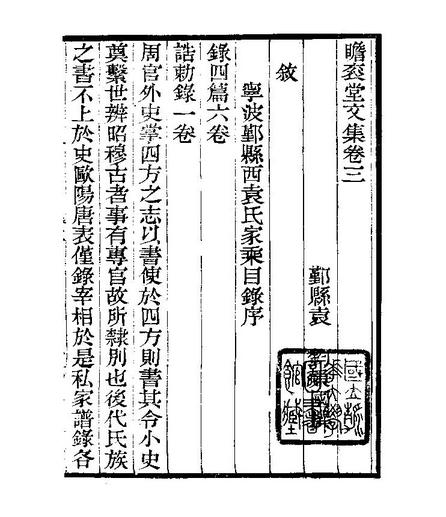 瞻衮堂文集卷三
鄞縣袁
敘
寧波鄞縣西袁氏家乘目錄序
錄四篇六卷
誥勅錄一卷
周官外史掌四方之志以書使於四方則書其令小史
奠繫世辨昭穆古者事有專官故所隸別也後代氏族
之書不上於史歐陽唐表僅錄宰相於是私家譜錄各